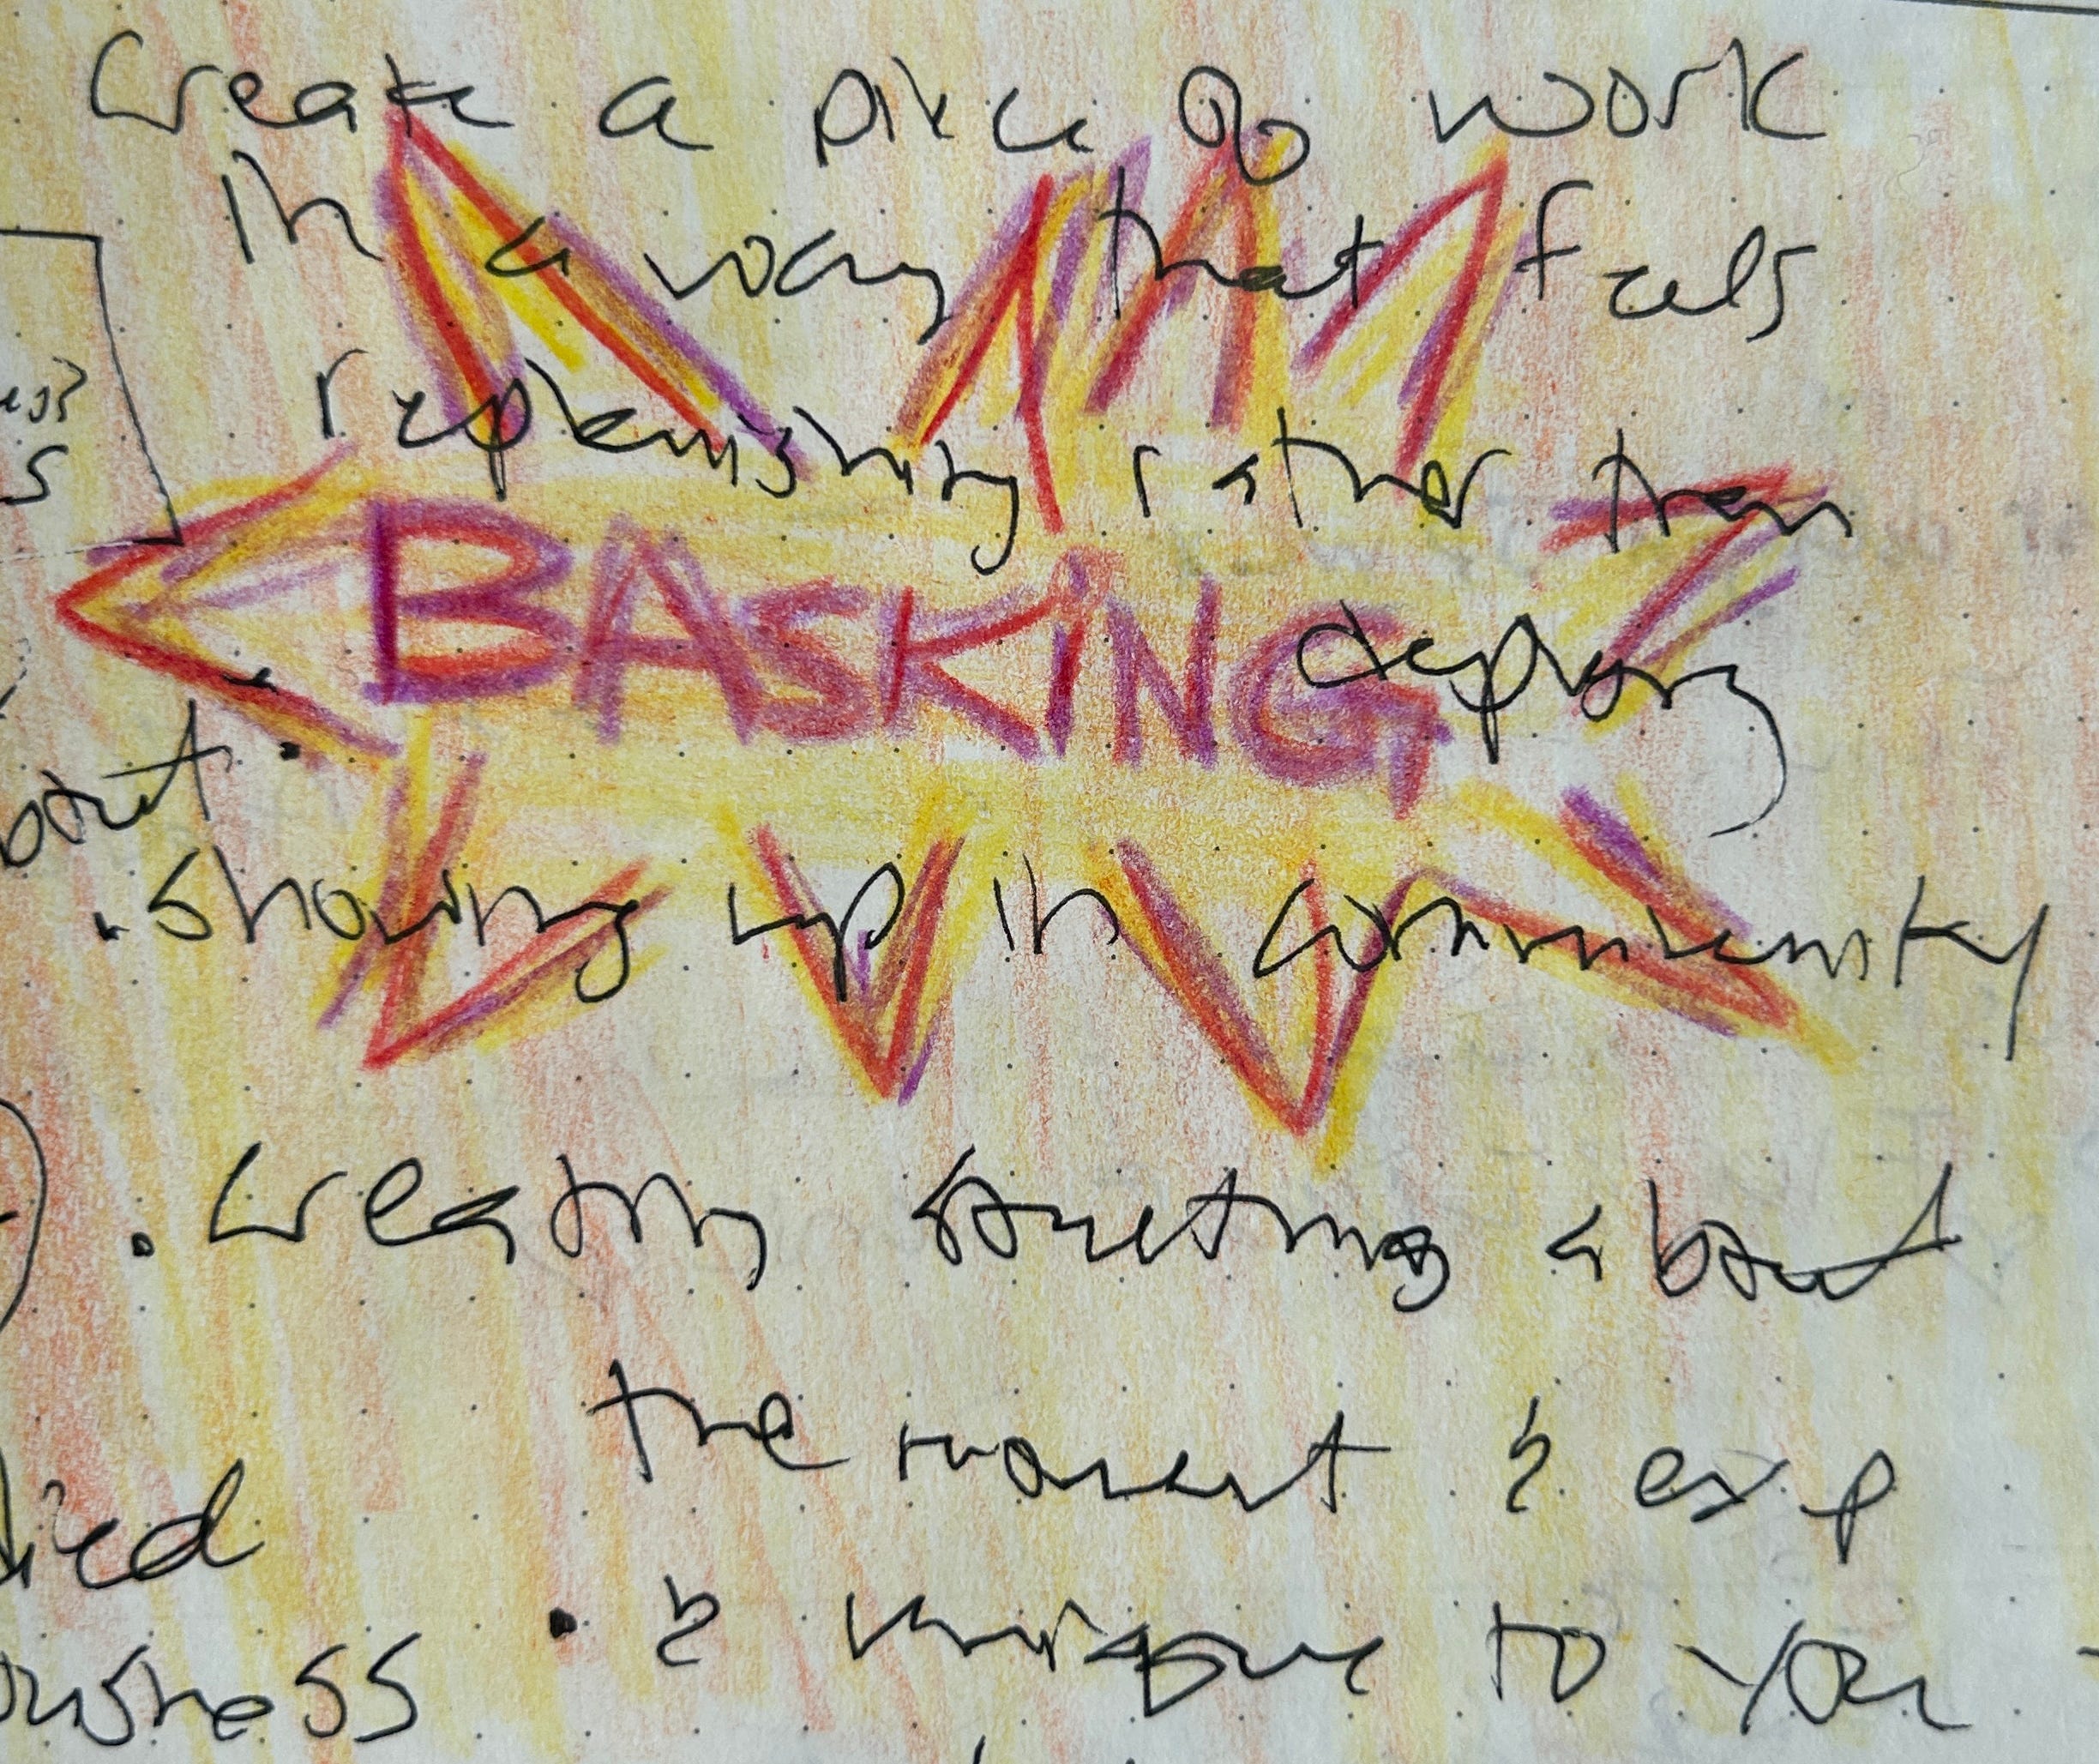 Create a piece of work
in a way that feels
replenishing rather than
BASKiNG
depleting
. showing up in community
. creating something about
the moment & exp
. & unique to you